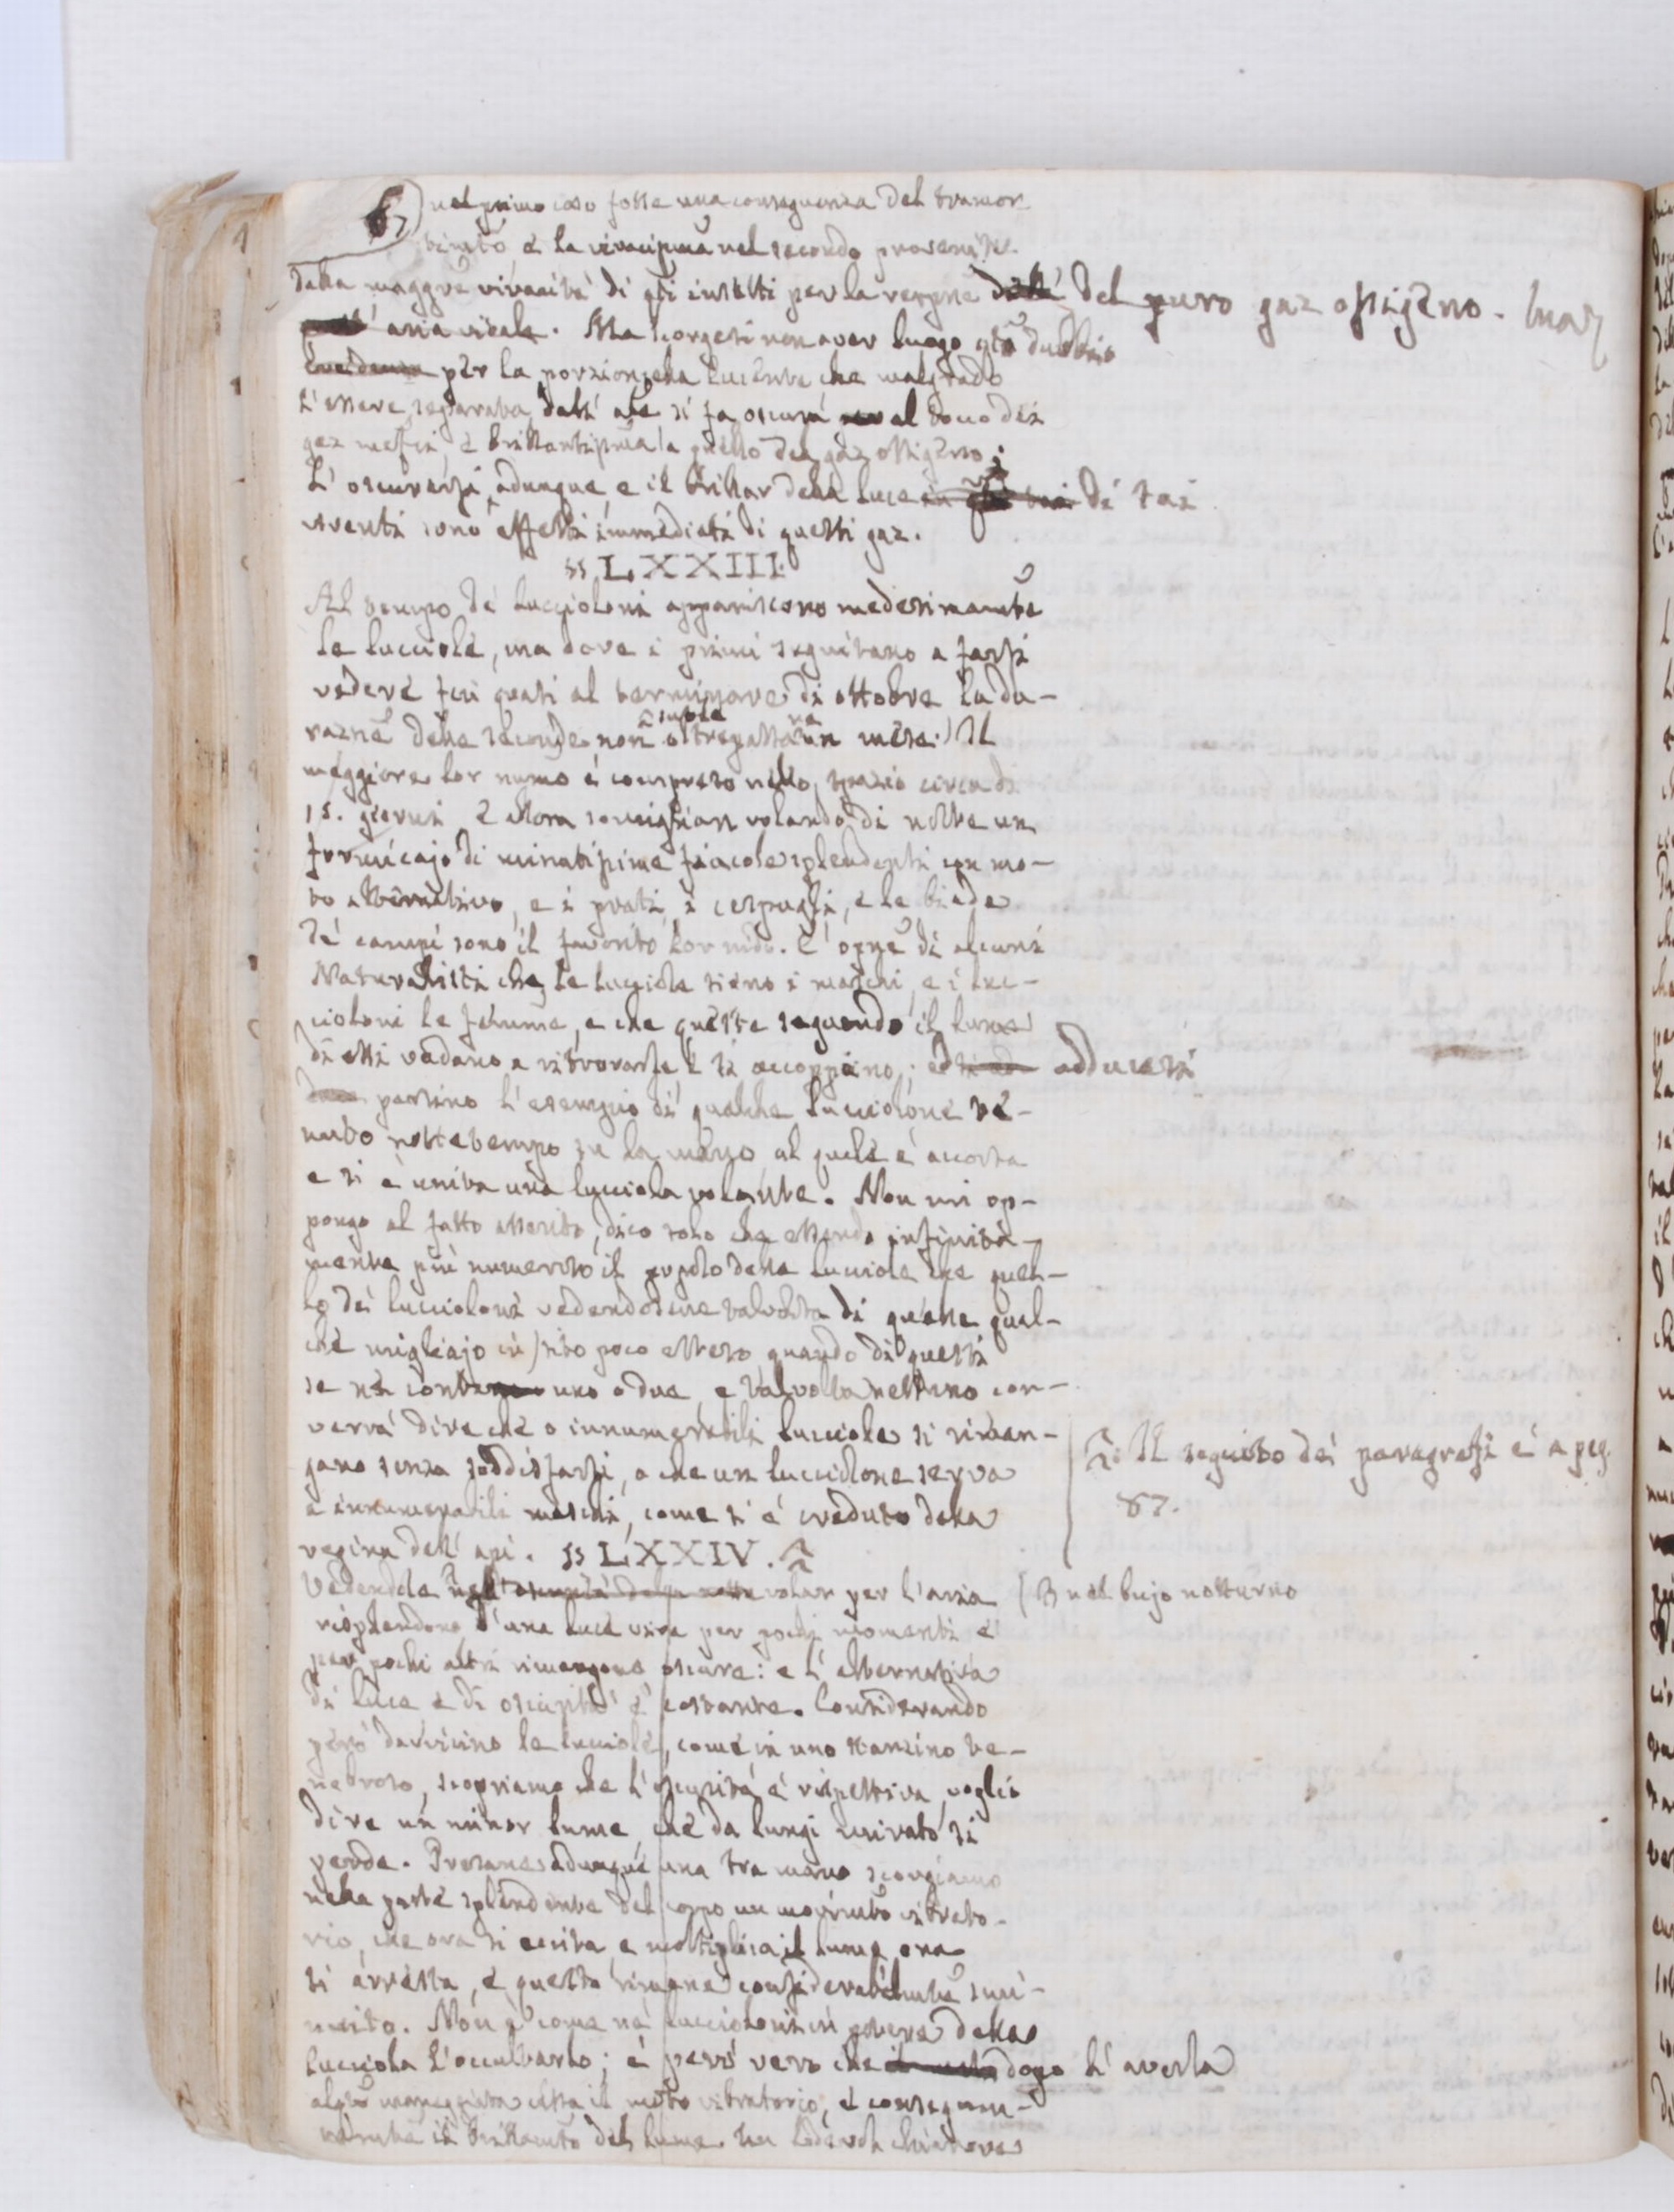 67) nel primo caso fosse una conseguenza del tramor-
timto, e la vivacissima nel secondo provenisse
dalla maggre vivacità di qti insetti per la respne dell' del puro gaz ossigeno.
aria vitale. Ma scorgesi non aver luogo qto dubbio
per la porzioncella lucente che malgrado
l'essere separata dall' ale si fa oscura al tocco dei
gaz mefici, e brillantissima a quello del gaz ossigeno;
L'oscurarsi adunque, e il brillar della luce di tai
viventi sono effetti immediati di questi gaz.
§§ LXXIII.
Al tempo de' luccioloni appariscono medesimamte
le lucciole, ma dove i primi seguitano a farsi
vedere fin quasi al terminare di ottobre la du-
razne delle seconde non oltrepassa un mese. Il
maggiore lor numo è compreso nello spazio circa di
15. giorni e allora somiglian volando di notte un
formicajo di minutissime fiacole splendenti con mo-
to alternativo, e i prati, i cespugli, e le biade
de' campi sono il favorito lor nido. E' opne di alcuni
Naturalisti che le lucciole sieno i maschi, e i luc-
cioloni le femme, e che queste seguendo il lume
di essi vadano a ritrovarle e si accoppino; ed adducesi
persino l'esempio di qualche lucciolone te-
nuto nottetempo su la mano, al quale è accorsa
e si è unita una lucciola volante. Non mi op-
pongo al fatto asserito, dico solo che essendo infinita-
mente più numeroso il popolo delle lucciole che quel-
lo dei luccioloni vedendosene talvolta di quelle qual-
che migliajo in sito poco esteso quando di questi
se ne conta uno o due, e talvolta nessuno con-
verrà dire che o innumerabili lucciole si riman-
gano senza soddisfarsi, o che un lucciolone serva
a innumerabili maschi, come si è creduto della
regina dell' api. §§ LXXIV.
2: Il seguito dei paragrafi è a pag.
87.
Vedendole nell'oscurità della notte volar per l'aria (B nel bujo notturno
risplendono d'una luce viva per pochi momenti e
per pochi altri rimangono oscure: e l'alternativa
di luce e di oscurità è costante. Considerando
però davvicino le lucciole, come in uno stanzino te-
nebroso, scopriamo che l'oscurità è rispettiva, voglio
dire un minor lume, che da lungi mirato si
perde. Presane adunque una tra mano scorgiamo
nella parte splendente del corpo un movimto vibrato-
rio, che ora si eccita, e moltiplica il lume, ora
si arresta, e questo rimane considerabilmte smi-
nuito. Non è come ne' luccioloni in potere della
lucciola l'occultarlo; è però vero che dopo l'averla
alqto maneggiata cessa il moto vibratorio, e conseguen-
temente il brillamto del lume.